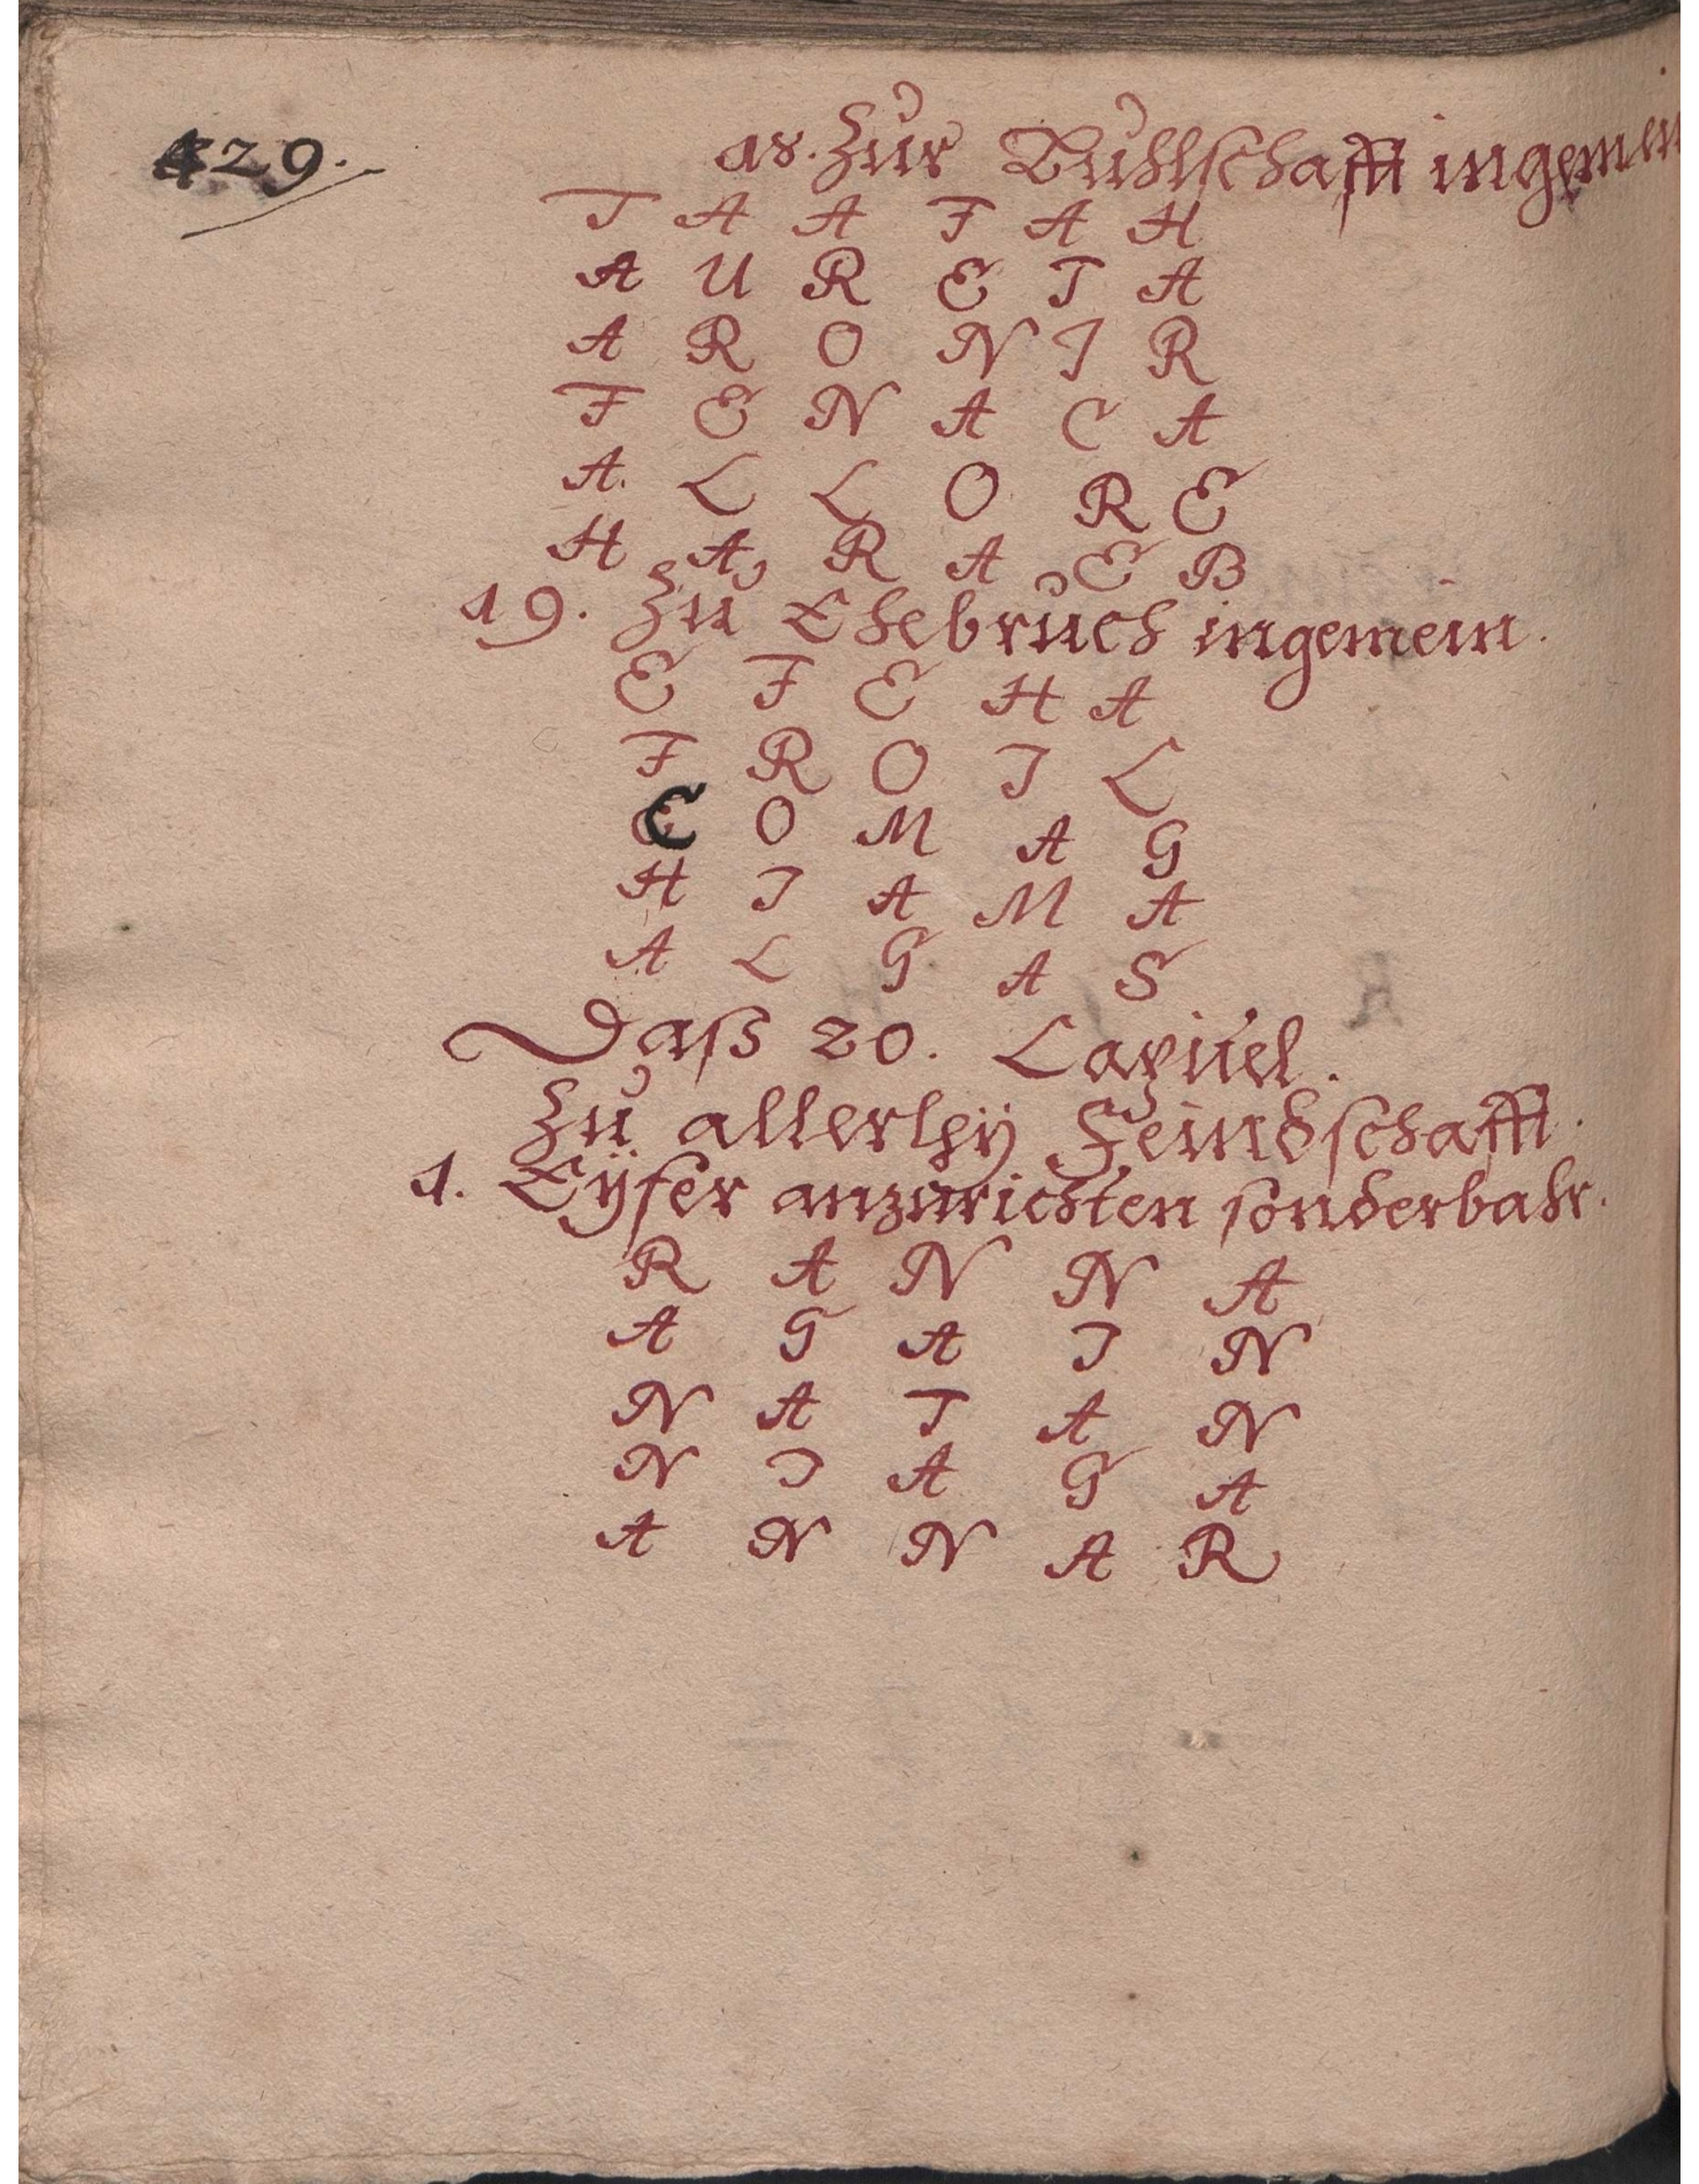 429.
18. Zur Buhlschafft ingemein
T A A F A H
A U R E T A
A R O N I R
F E N A C A
A. L L O R E
H A R A E B
19. Zu Ehebruch ingemein.
E F E H A
F R O I L
C O M A G
H I A M A
A L G A S
Daß 20. Capitel.
Zu allerleÿ Feindschafft.
1. Eÿfer anzurichten sonderbahr.
R A N N A
A G A I N
N A T A N
N I A G A
A N N A R